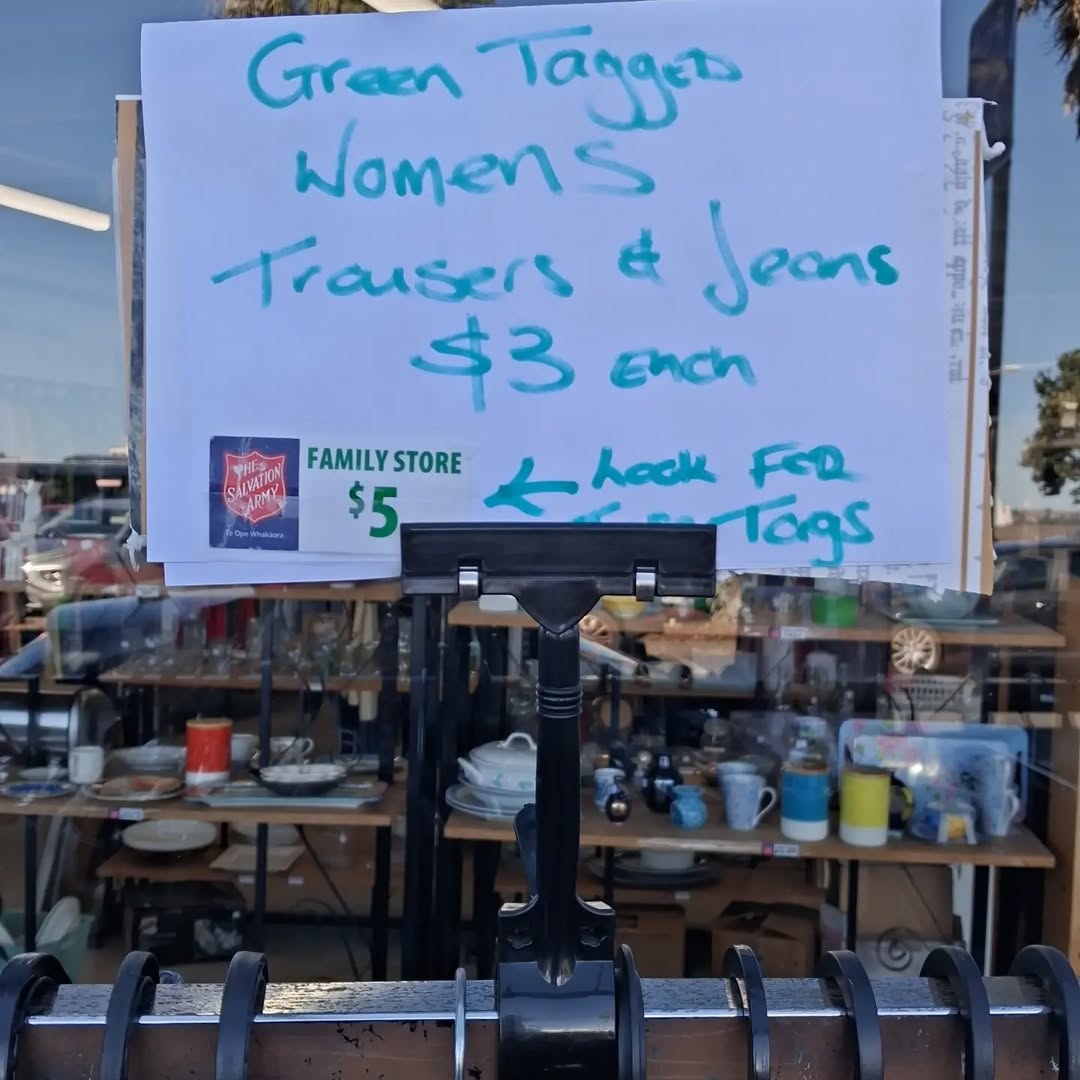 Green Tagged
Womens
Trousers & Jeans
$3 each
THE
SALVATION
ARMY
Te Ope Whakaora
FAMILY STORE
$5
← Look For
Tags